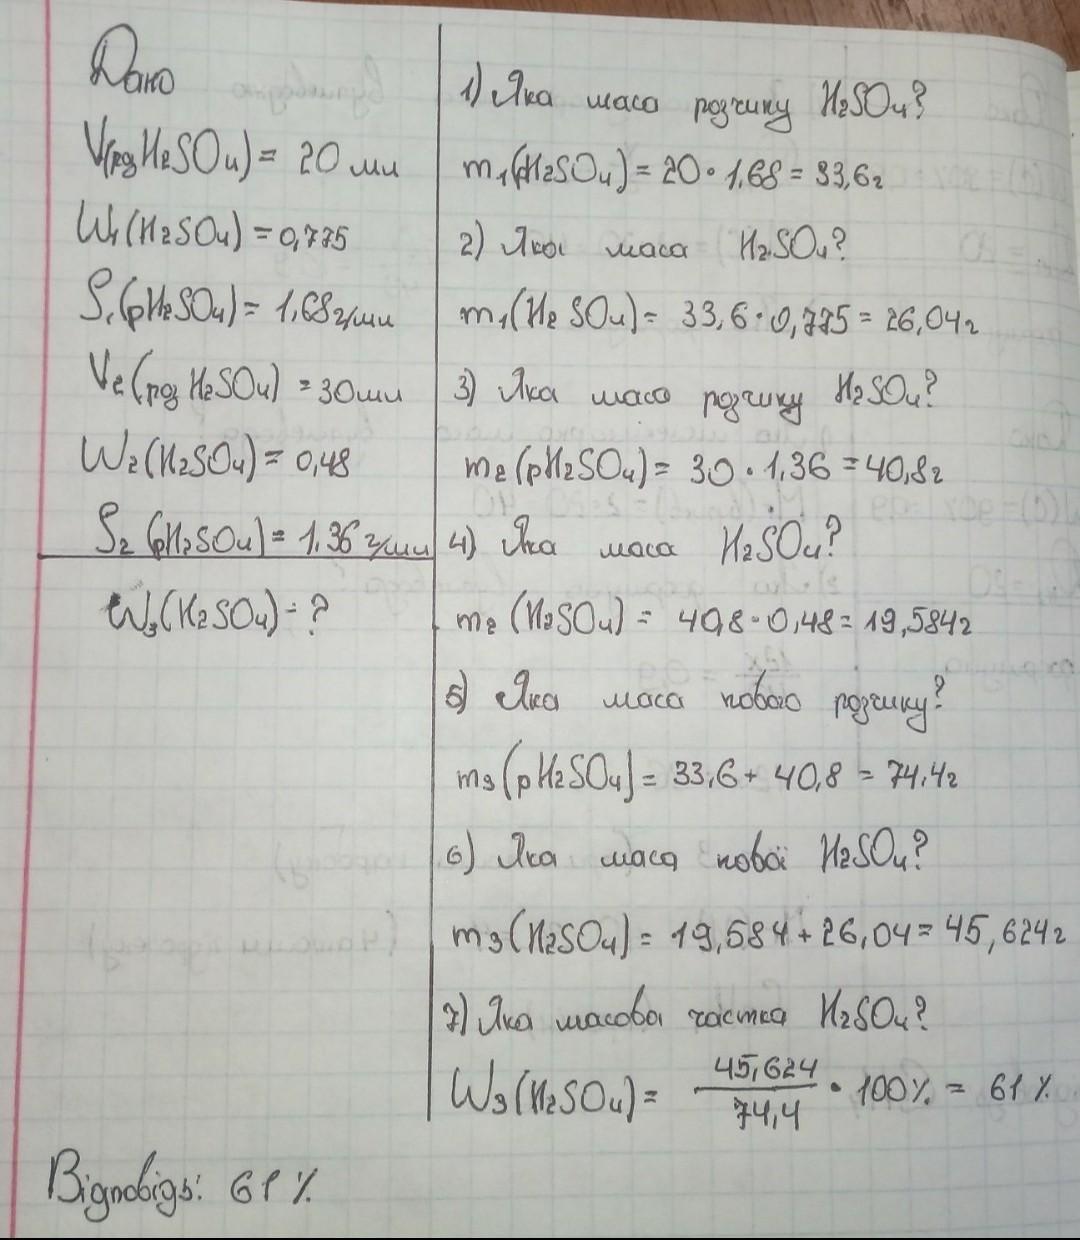 Дано
V(рз H2SO4) = 20 мл
W1(H2SO4) = 0,775
ρ1(рH2SO4) = 1,68 г/мл
V2(рз H2SO4) = 30 мл
W2(H2SO4) = 0,48
ρ2(рH2SO4) = 1,36 г/мл
W3(H2SO4) - ?
1) Яка маса розчину H2SO4?
m1(рH2SO4) = 20 · 1,68 = 33,6г
2) Яка маса H2SO4?
m1(H2SO4) = 33,6 · 0,775 = 26,04г
3) Яка маса розчину H2SO4?
m2(рH2SO4) = 30 · 1,36 = 40,8г
4) Яка маса H2SO4?
m2(H2SO4) = 40,8 · 0,48 = 19,584г
5) Яка маса нового розчину?
m3(рH2SO4) = 33,6 + 40,8 = 74,4г
6) Яка маса нової H2SO4?
m3(H2SO4) = 19,584 + 26,04 = 45,624г
7) Яка масова частка H2SO4?
W3(H2SO4) = 45,624 / 74,4 · 100% = 61%
Відповідь: 61%